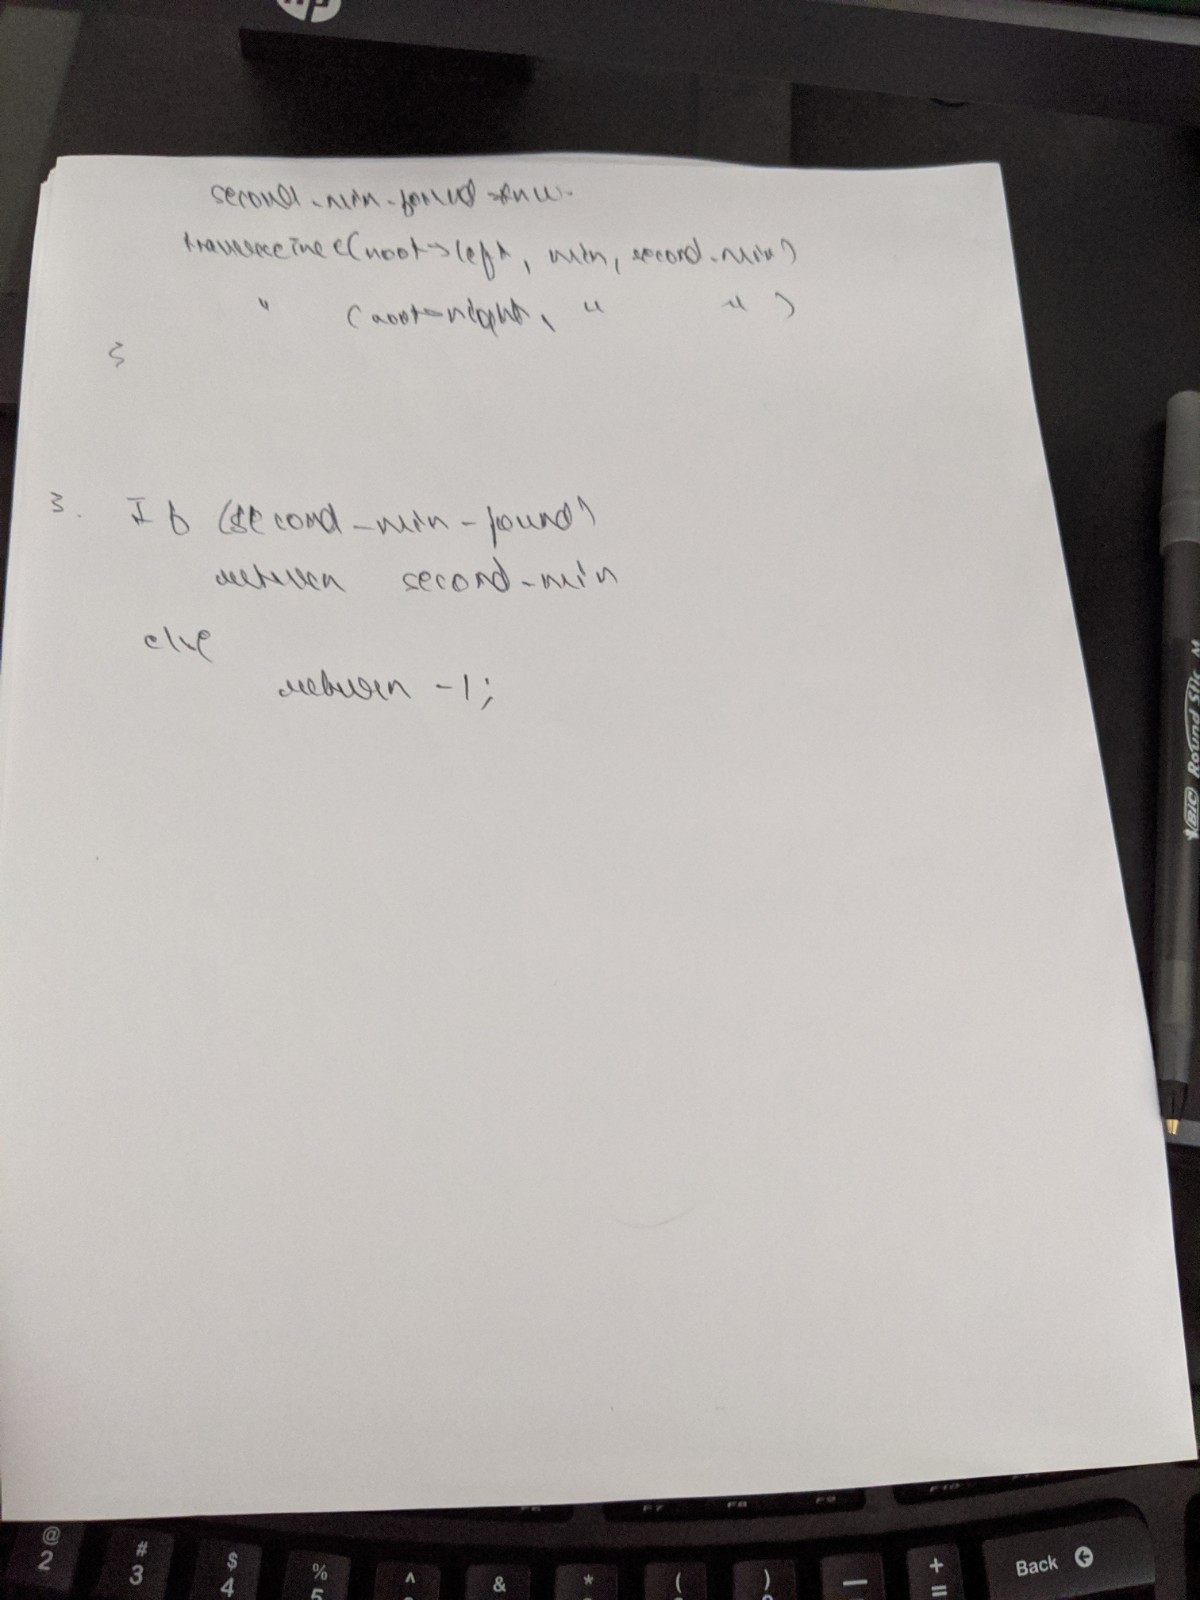 hp
second-min-found = true.
traverseTree(root->left, min, second-min)
" (root->right, " " )
}
3. If (second-min-found)
return second-min
else
return -1;
BIC Round Stic M
F6 F7 F8 F9 F10
@ # $ % ^ & * ( ) — + Back
2 3 4 5 =